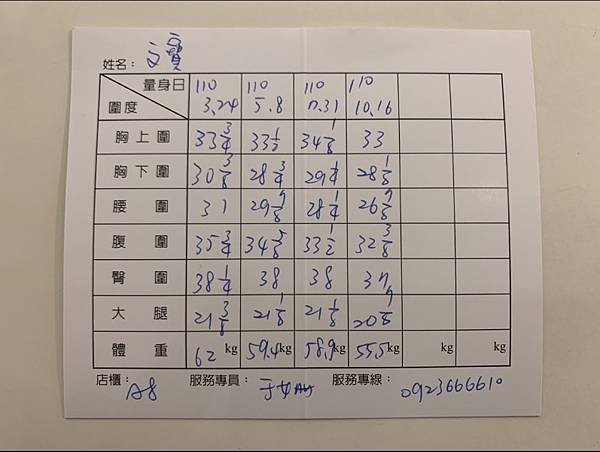 姓名： 文寶
量身日 110 110 110 110
圍度 3.24 5.8 7.31 10.16
胸上圍 33 3/4 33 1/2 34 1/8 33
胸下圍 30 3/8 28 3/4 29 1/4 28 1/8
腰圍 31 29 7/8 28 1/4 26 7/8
腹圍 35 3/4 34 5/8 33 1/2 32 3/8
臀圍 38 1/4 38 38 37
大腿 21 3/8 21 1/8 21 1/8 20 7/8
體重 62 kg 59.4 kg 58.9 kg 55.5 kg kg kg
店櫃： A8 服務專員： 服務專線： 0923666610